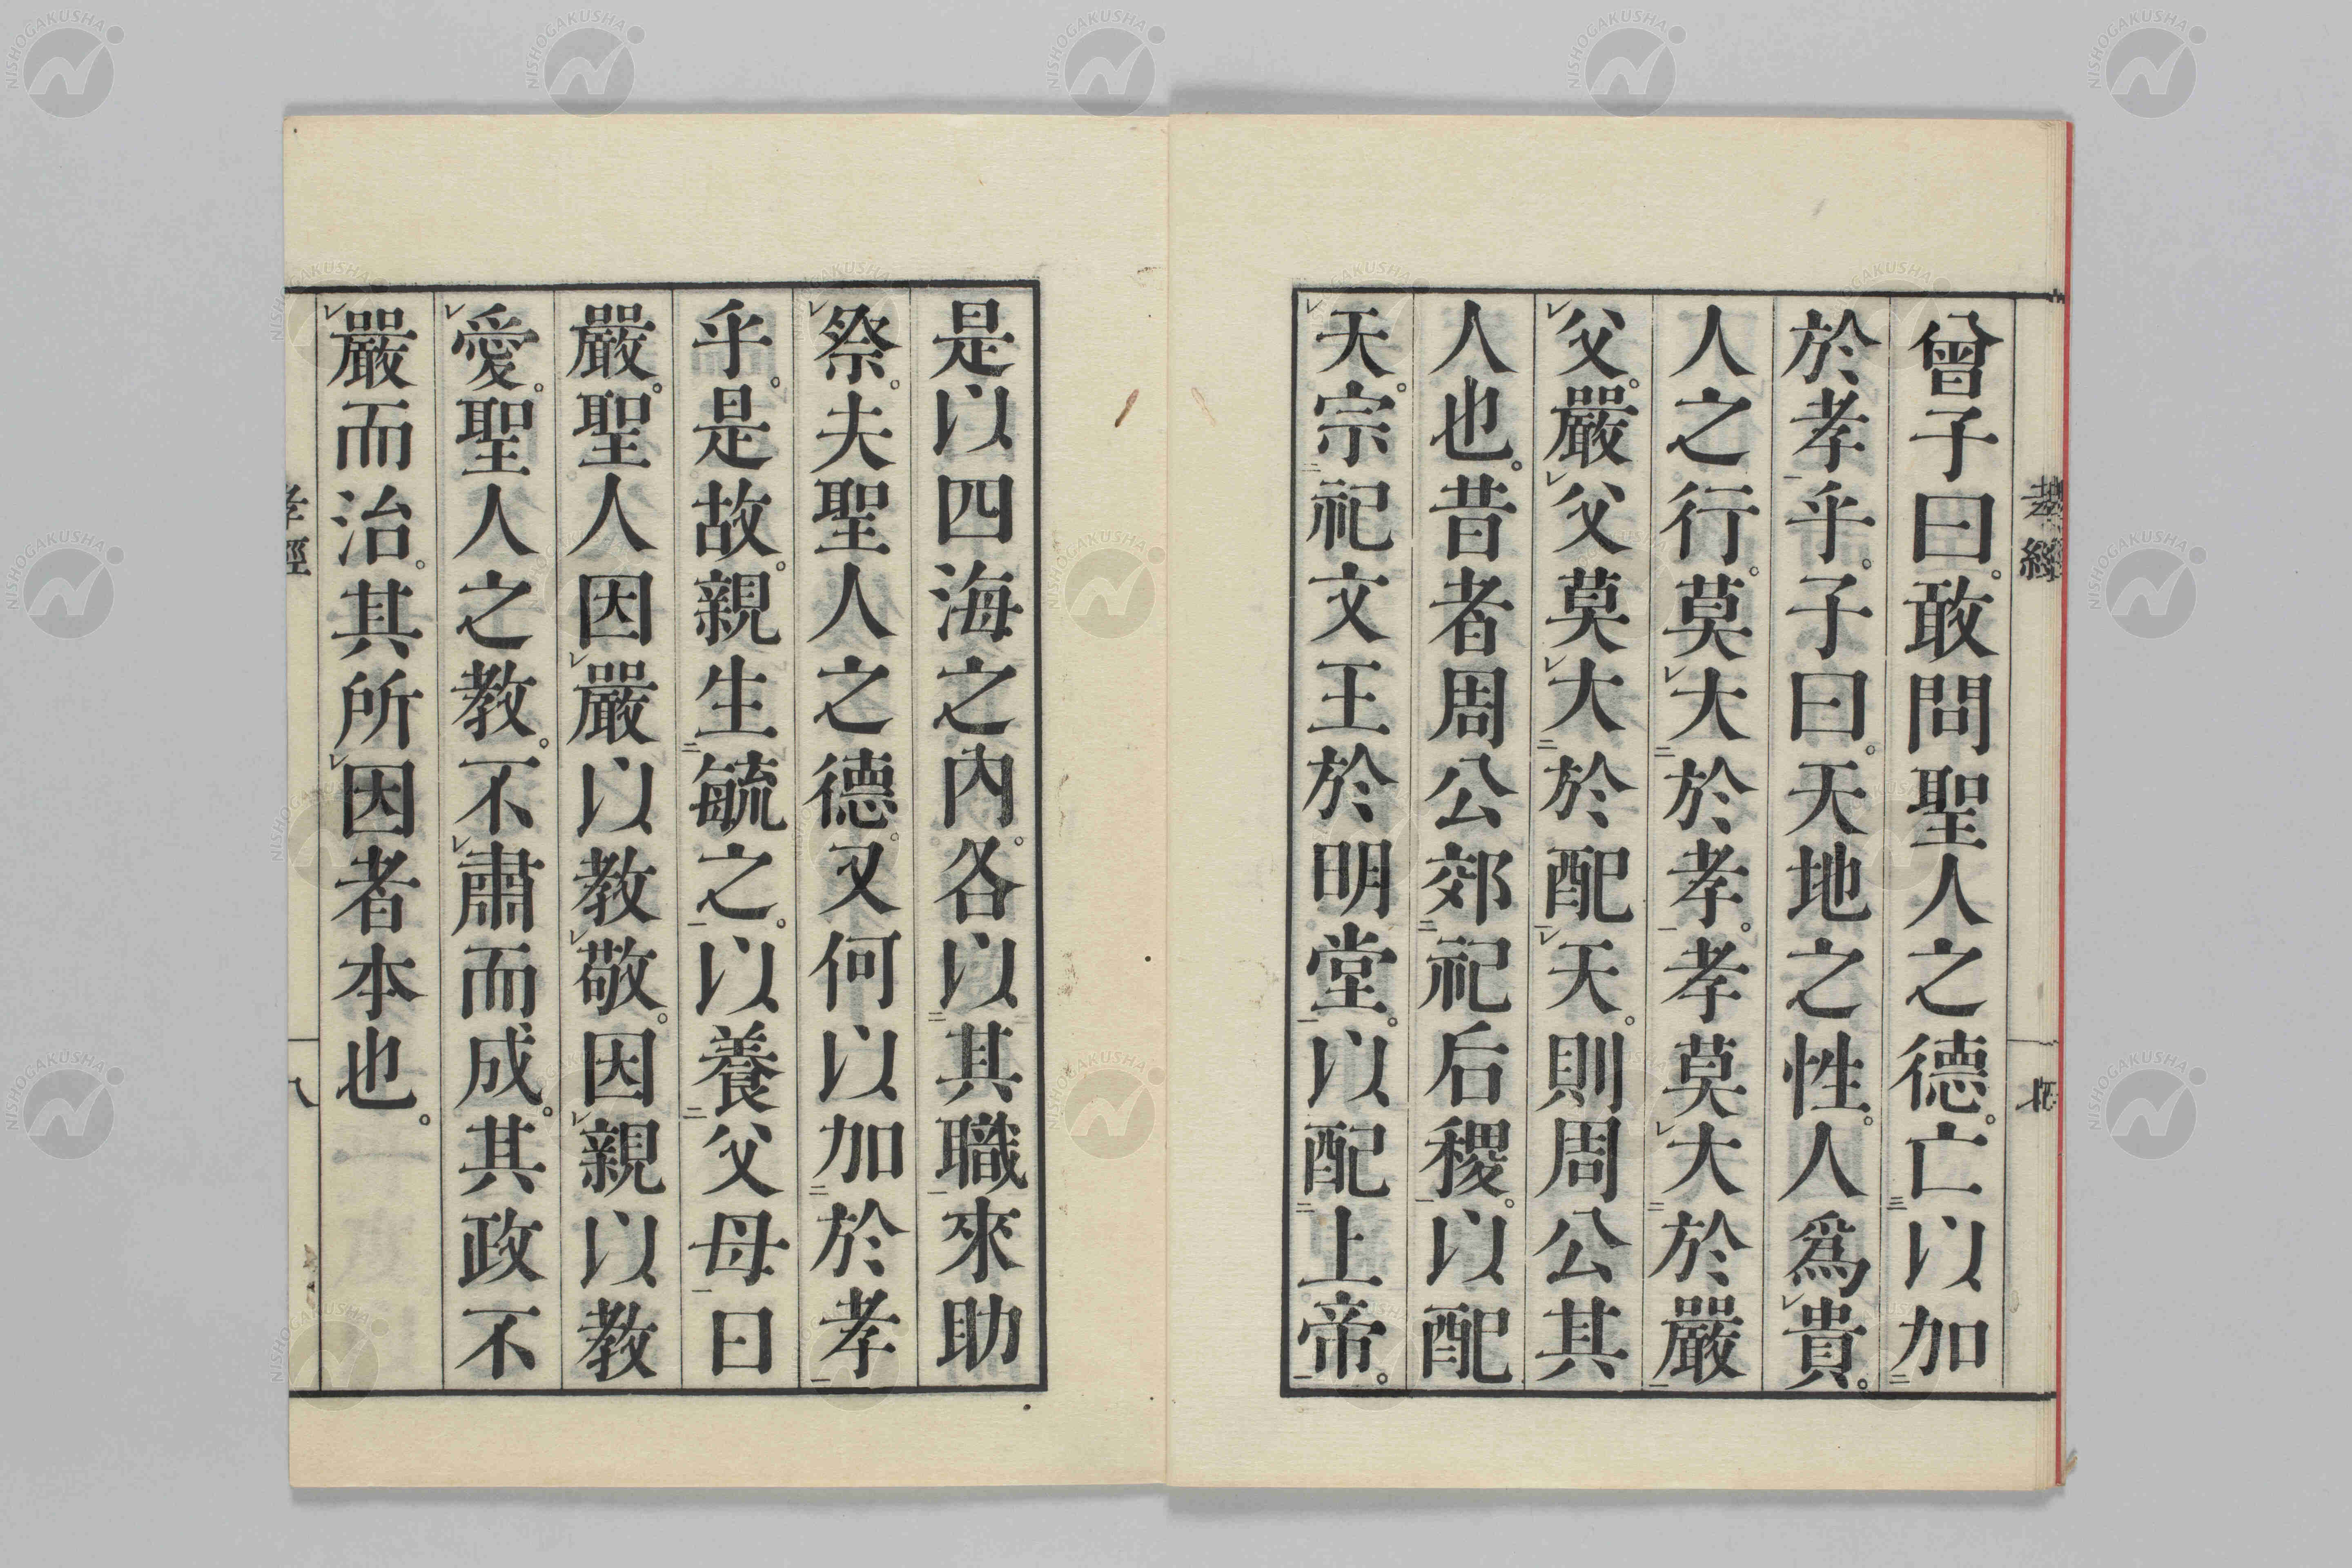 曾子曰。敢問聖人之德。亡以加
於孝乎。子曰。天地之性。人爲貴。
人之行。莫大於孝。孝莫大於嚴
父。嚴父莫大於配天。則周公其
人也。昔者周公郊祀后稷。以配
天。宗祀文王於明堂。以配上帝。
是以四海之內。各以其職來助
祭。夫聖人之德。又何以加於孝
乎。是故。親生毓之。以養父母日
嚴。聖人因嚴以教敬。因親以教
愛。聖人之教。不肅而成。其政不
嚴而治。其所因者本也。
孝經
八
NISHOGAKUSHA